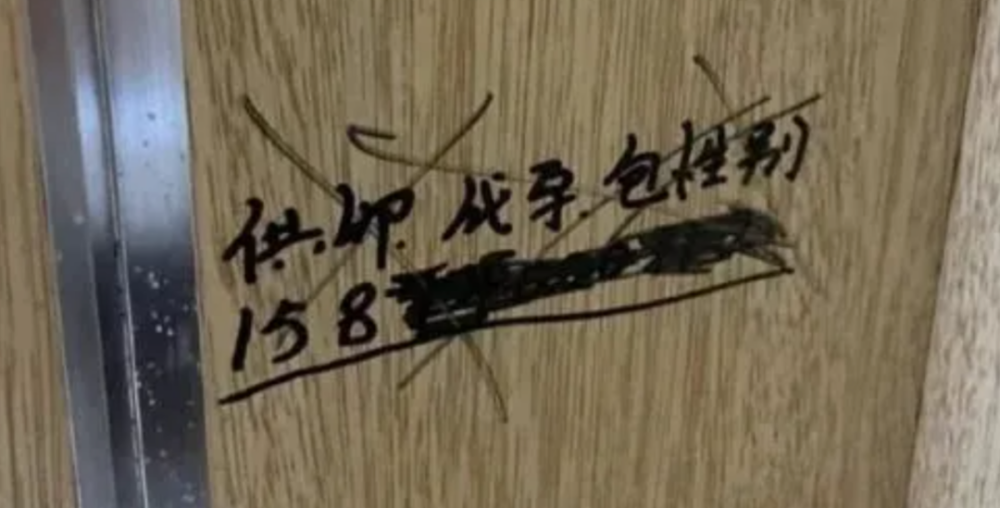 供.卵.代孕.包性别
158